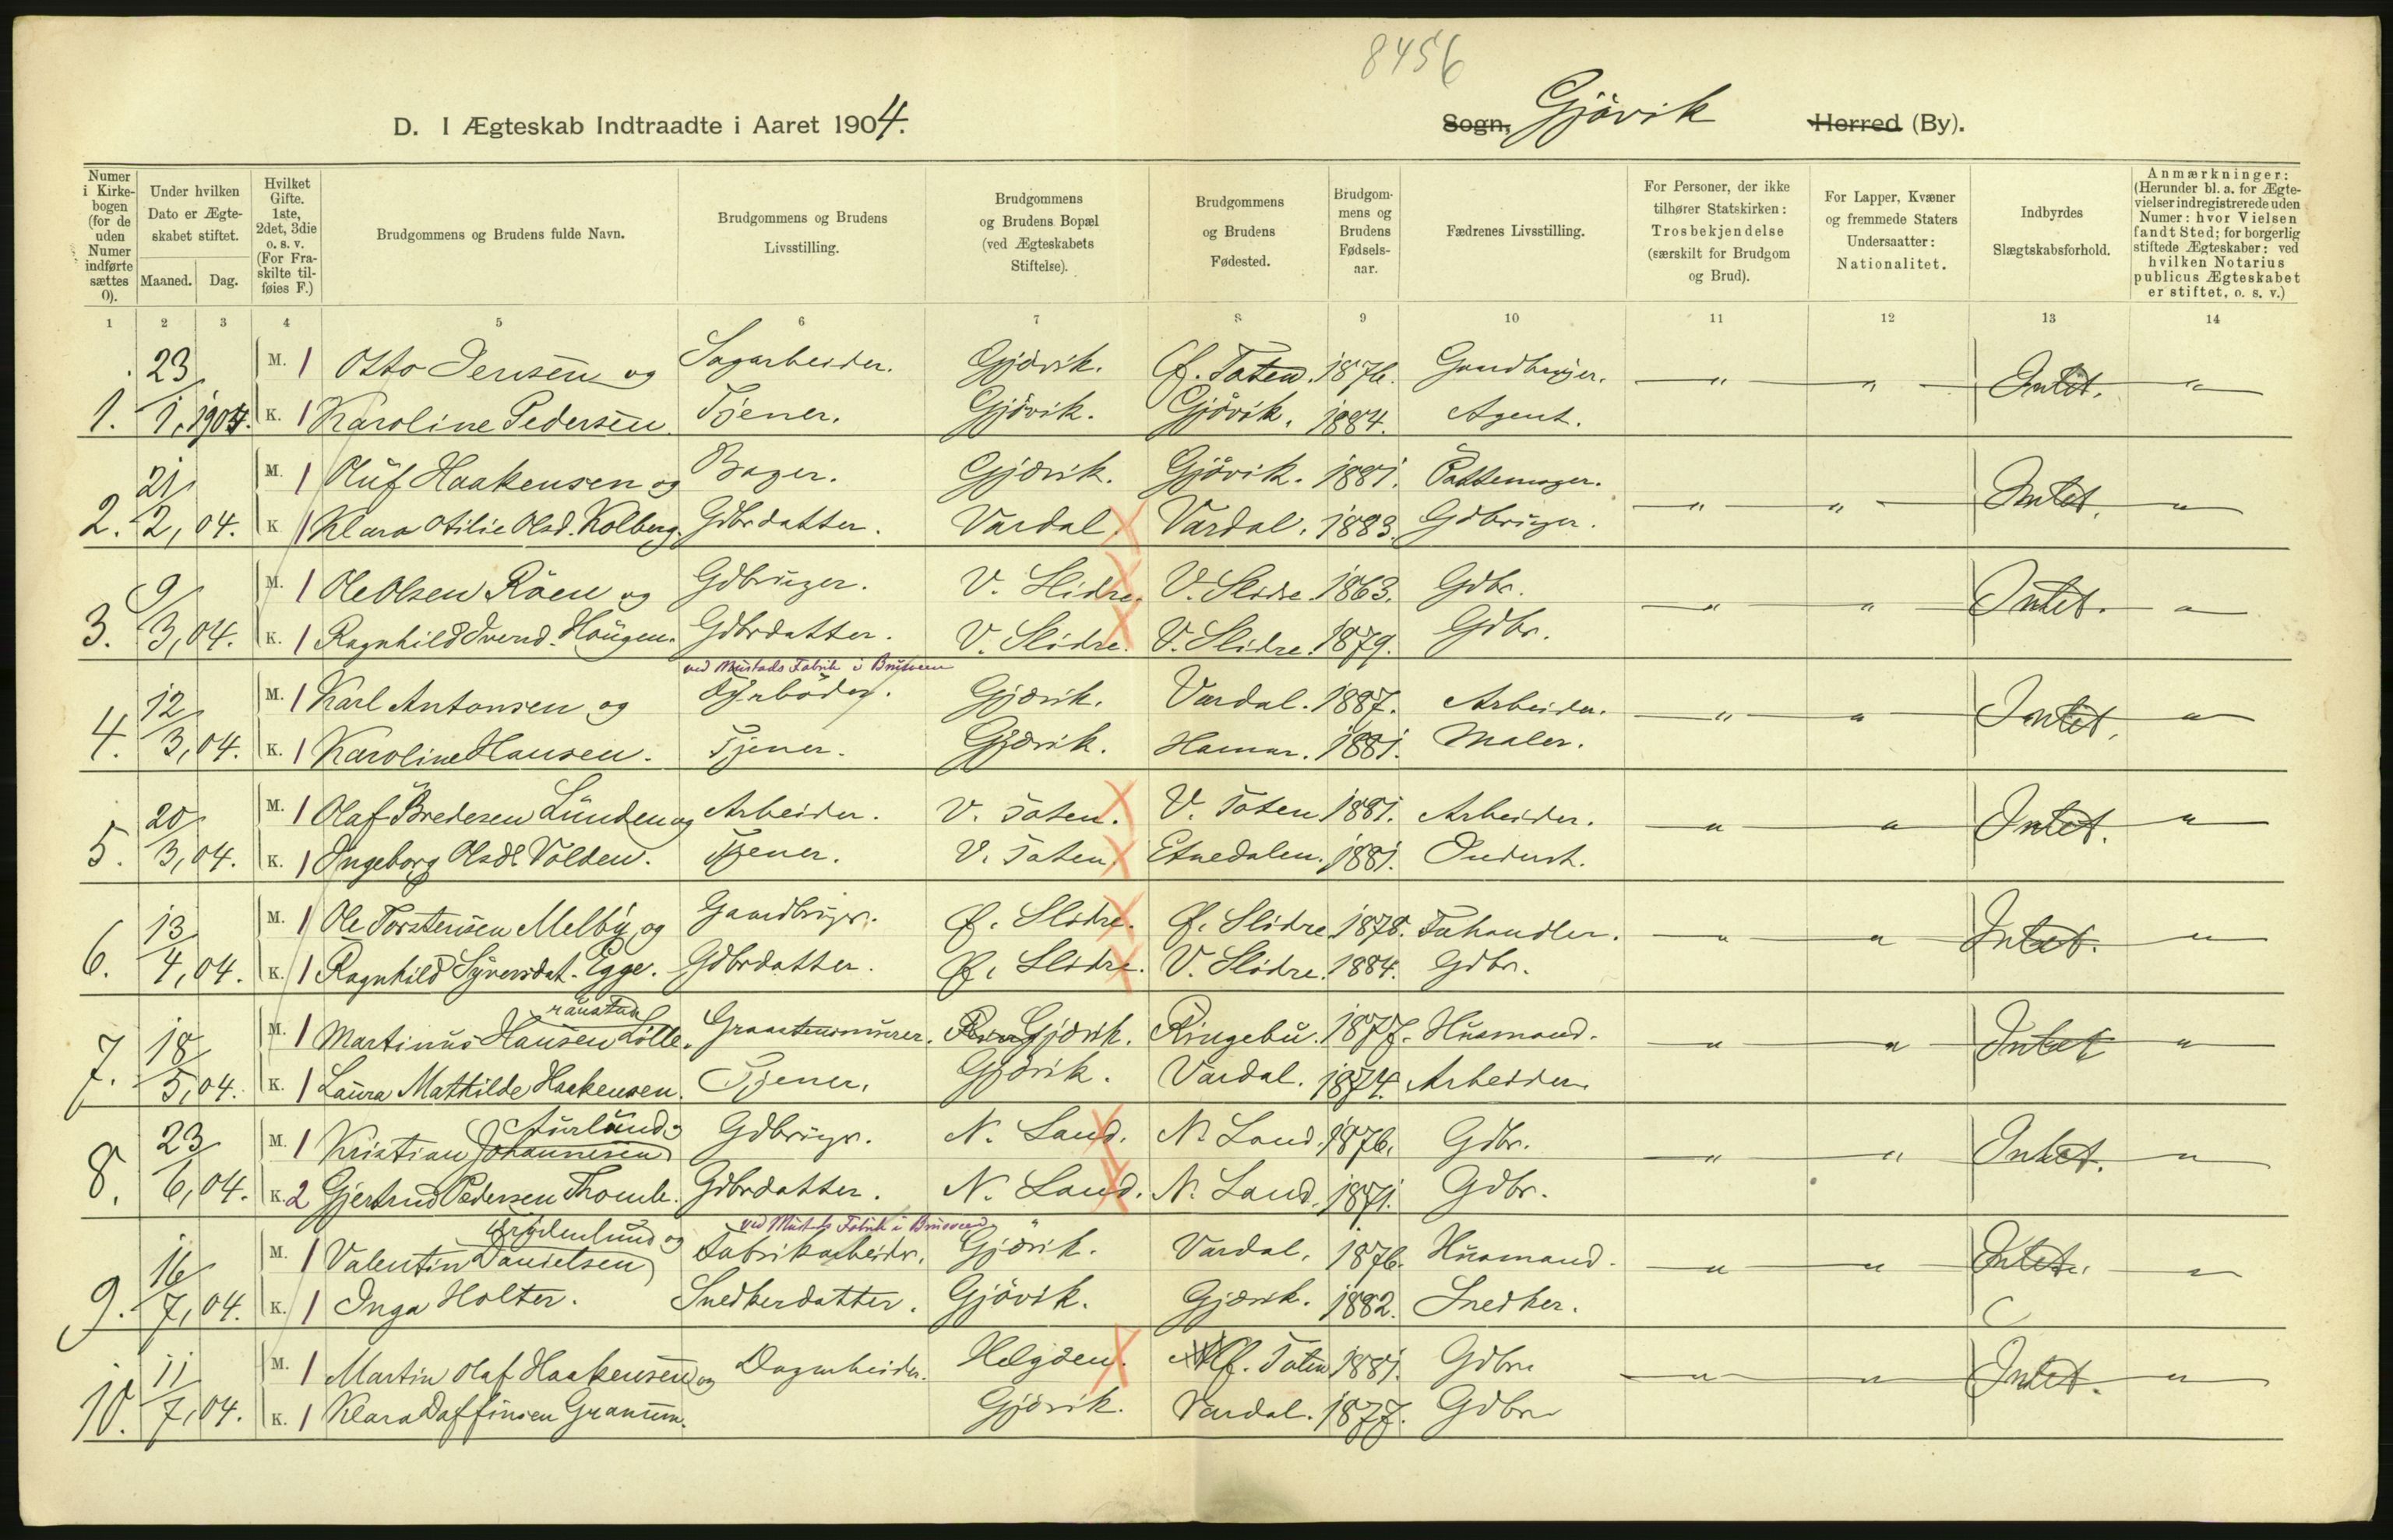 8456
D. I Ægteskab Indtraadte i Aaret 1904.
Sogn, Gjövik Herred (By).
Numer i Kirkebogen (for de uden Numer indførte sættes 0).
Under hvilken Dato er Ægteskabet stiftet.
Maaned. Dag.
Hvilket Gifte. 1ste, 2det, 3die o. s. v. (For Fraskilte tilføies F.)
Brudgommens og Brudens fulde Navn.
Brudgommens og Brudens Livsstilling.
Brudgommens og Brudens Bopæl (ved Ægteskabets Stiftelse).
Brudgommens og Brudens Fødested.
Brudgommens og Brudens Fødselsaar.
Fædrenes Livsstilling.
For Personer, der ikke tilhører Statskirken: Trosbekjendelse (særskilt for Brudgom og Brud).
For Lapper, Kvæner og fremmede Staters Undersaatter: Nationalitet.
Indbyrdes Slægtskabsforhold.
Anmærkninger: (Herunder bl. a. for Ægtevielser indregistrerede uden Numer: hvor Vielsen fandt Sted; for borgerlig stiftede Ægteskaber: ved hvilken Notarius publicus Ægteskabet er stiftet, o. s. v.)
1 2 3 4 5 6 7 8 9 10 11 12 13 14
23 M. 1 Otto Jensen og Sagarbeider. Gjövik. Ø. Toten. 1876. Gaardbruger. " " Intet. "
1. 1, 1904. K. 1 Karoline Pedersen. Tjener. Gjövik. Gjövik. 1884. Agent.
21 M. 1 Oluf Haakensen og Bager. Gjövik. Gjövik. 1881. Pottemager. " " Intet. "
2. 2, 04. K 1 Klara Otilie Olsd. Kolberg. Gdbrdatter. Vardal. Vardal. 1883. Gdbruger.
9 M. 1 Ole Olsen Röen og Gdbruger. V. Slidre. V. Slidre 1863. Gdbr. " " Intet. "
3. 3, 04. K. 1 Ragnhild Iversd. Haugen. Gdbrdatter. V. Slidre. V. Slidre. 1879. Gdbr.
ved Mustads Fabrik i Brusveen
12 M. 1 Karl Antonsen og Fyrböder. Gjövik. Vardal. 1887. Arbeider. " " Intet. "
4. 3, 04. K. 1 Karoline Hansen. Tjener. Gjövik. Hamar. 1881. Maler.
20 M. 1 Olaf Bredesen Lunden og Arbeider. V. Toten. V. Toten 1881. Arbeider. " " Intet. "
5. 3, 04. K. 1 Ingeborg Olsdt. Volden. Tjener. V. Toten. Etnedalen. 1881. Inderst.
13 M. 1 Ole Torstensen Melby og Gaardbruger. Ø. Slidre. Ø. Slidre 1878. Fæhandler. " " Intet. "
6. 4, 04. K. 1 Ragnhild Syversdat. Egge. Gdbrdatter. Ø. Slidre. V. Slidre. 1884. Gdbr.
18 M. 1 Martinus Hansen Lille. Graastensmurer. Gjövik. Ringebu. 1877. Husmand. " " Intet "
7. 5, 04. K. 1 Laura Mathilde Haakensen. Tjener. Gjövik. Vardal. 1874. Arbeider.
Aurlund og
23 M. 1 Kristian Johannesen Gdbruger. N. Land. N. Land. 1876. Gdbr. " " Intet. "
8. 6, 04. K. 2 Gjertrud Pedersen Thomle. Gdbrdatter. N. Land. N. Land. 1871. Gdbr.
Frydenlund og ved Mustads Fabrik i Brusveen
16 M. 1 Valentin Danielsen Fabrikarbeider. Gjövik. Vardal. 1876. Husmand. " " Intet. "
9. 7, 04. K. 1 Inga Holter. Snedkerdatter. Gjövik. Gjövik. 1882. Snedker.
11 M. 1 Martin Olaf Haakensen og Dagarbeider. Helgöen. Ø. Toten 1881. Gdbr. " " Intet. "
10. 7, 04. K. 1 Klara Daffinsen Granum. Gjövik. Vardal. 1877. Gdbr.